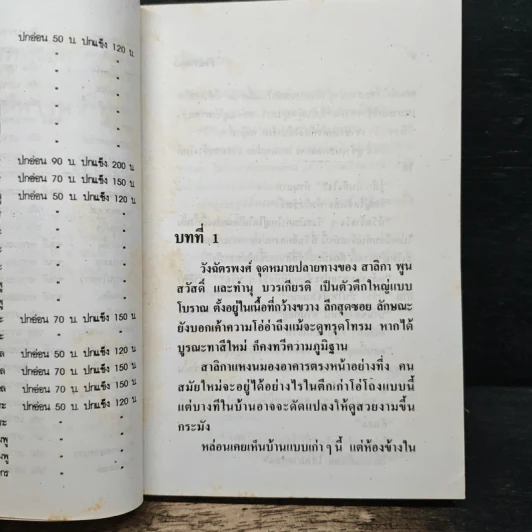 ปกอ่อน 50 บ. ปกแข็ง 120 บ.
ปกอ่อน 90 บ. ปกแข็ง 200 บ.
ปกอ่อน 70 บ. ปกแข็ง 150 บ.
ปกอ่อน 50 บ. ปกแข็ง 120 บ.
ปกอ่อน 70 บ. ปกแข็ง 150 บ.
ปกอ่อน 50 บ. ปกแข็ง 120 บ.
ปกอ่อน 70 บ. ปกแข็ง 150 บ.
ปกอ่อน 70 บ. ปกแข็ง 150 บ.
ปกอ่อน 50 บ. ปกแข็ง 120 บ.
บทที่ 1
วังฉัตรพงศ์ จุดหมายปลายทางของ สาลิกา พูน
สวัสดิ์ และทำนุ บวรเกียรติ เป็นตัวตึกใหญ่แบบ
โบราณ ตั้งอยู่ในเนื้อที่กว้างขวาง ลึกสุดซอย ลักษณะ
ยังบอกเค้าความโอ่อ่าถึงแม้จะดูทรุดโทรม หากได้
บูรณะทาสีใหม่ ก็คงทวีความภูมิฐาน
สาลิกาแหงนมองอาคารตรงหน้าอย่างทึ่ง คน
สมัยใหม่จะอยู่ได้อย่างไรในตึกเก่าโอ่โถงแบบนี้
แต่บางทีในบ้านอาจจะดัดแปลงให้ดูสวยงามขึ้น
กระมัง
หล่อนเคยเห็นบ้านแบบเก่า ๆ นี้ แต่ห้องข้างใน